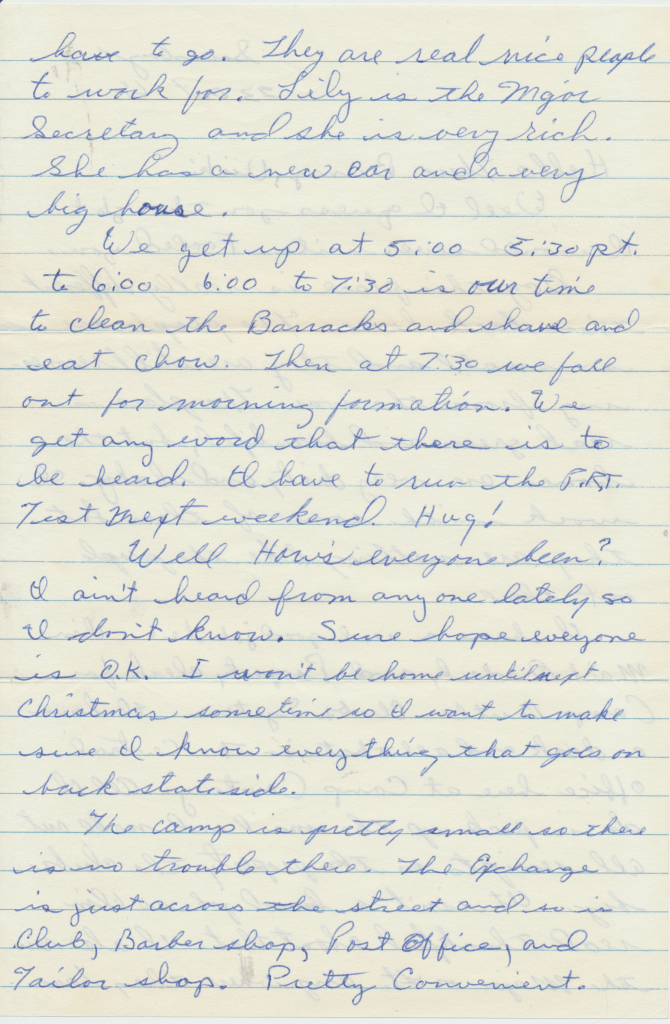 have to go. They are real nice people
to work for. Lily is the Major
Secretary and she is very rich.
She has a new car and a very
big house.
We get up at 5:00 5:30 pt.
to 6:00 6:00 to 7:30 is our time
to clean the Barracks and shave and
eat chow. Then at 7:30 we fall
out for morning formation. We
get any word that there is to
be heard. I have to run the P.R.T.
Test next weekend. Hug!
Well How's everyone been?
I ain't heard from anyone lately so
I don't know. Sure hope everyone
is O.K. I won't be home until next
Christmas sometime so I want to make
sure I know everything that goes on
back stateside.
The camp is pretty small so there
is no trouble there. The Exchange
is just across the street and so is
Club, Barber shop, Post Office, and
Tailor shop. Pretty Convenient.